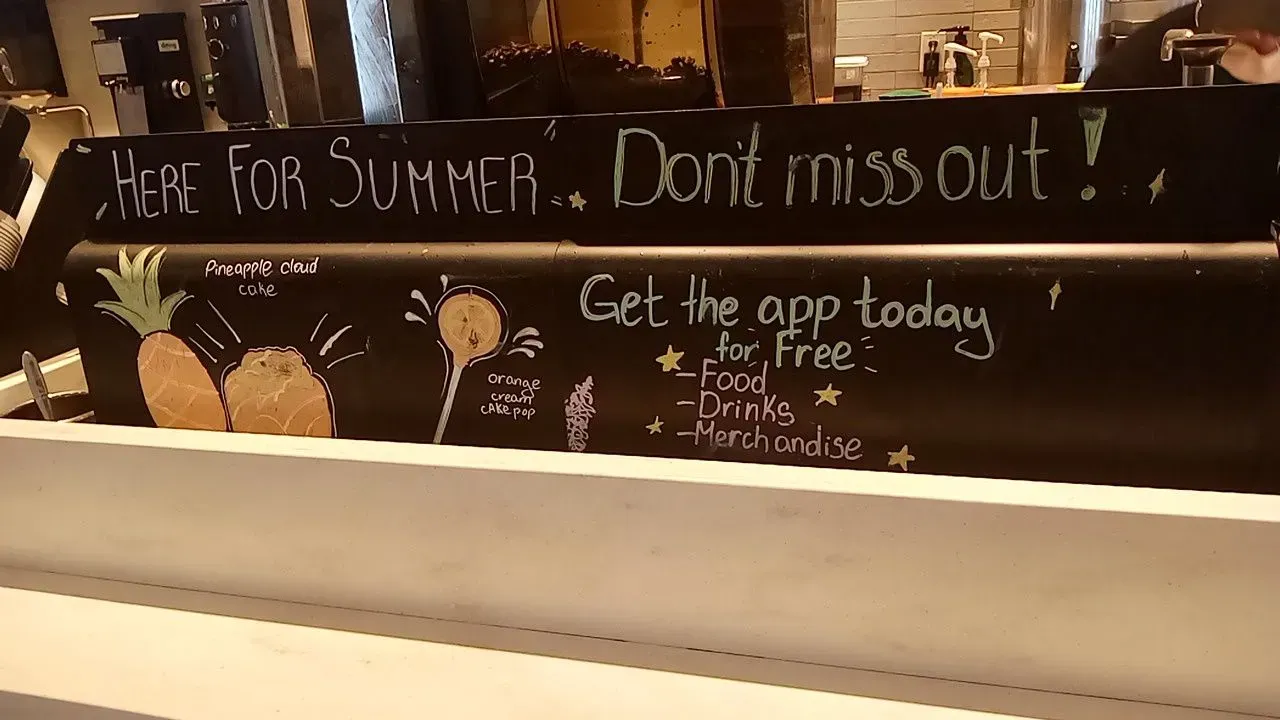 HERE FOR SUMMER
Don't miss out!
Pineapple cloud
cake
orange
cream
cakepop
Get the app today
for Free
-Food
-Drinks
-Merchandise